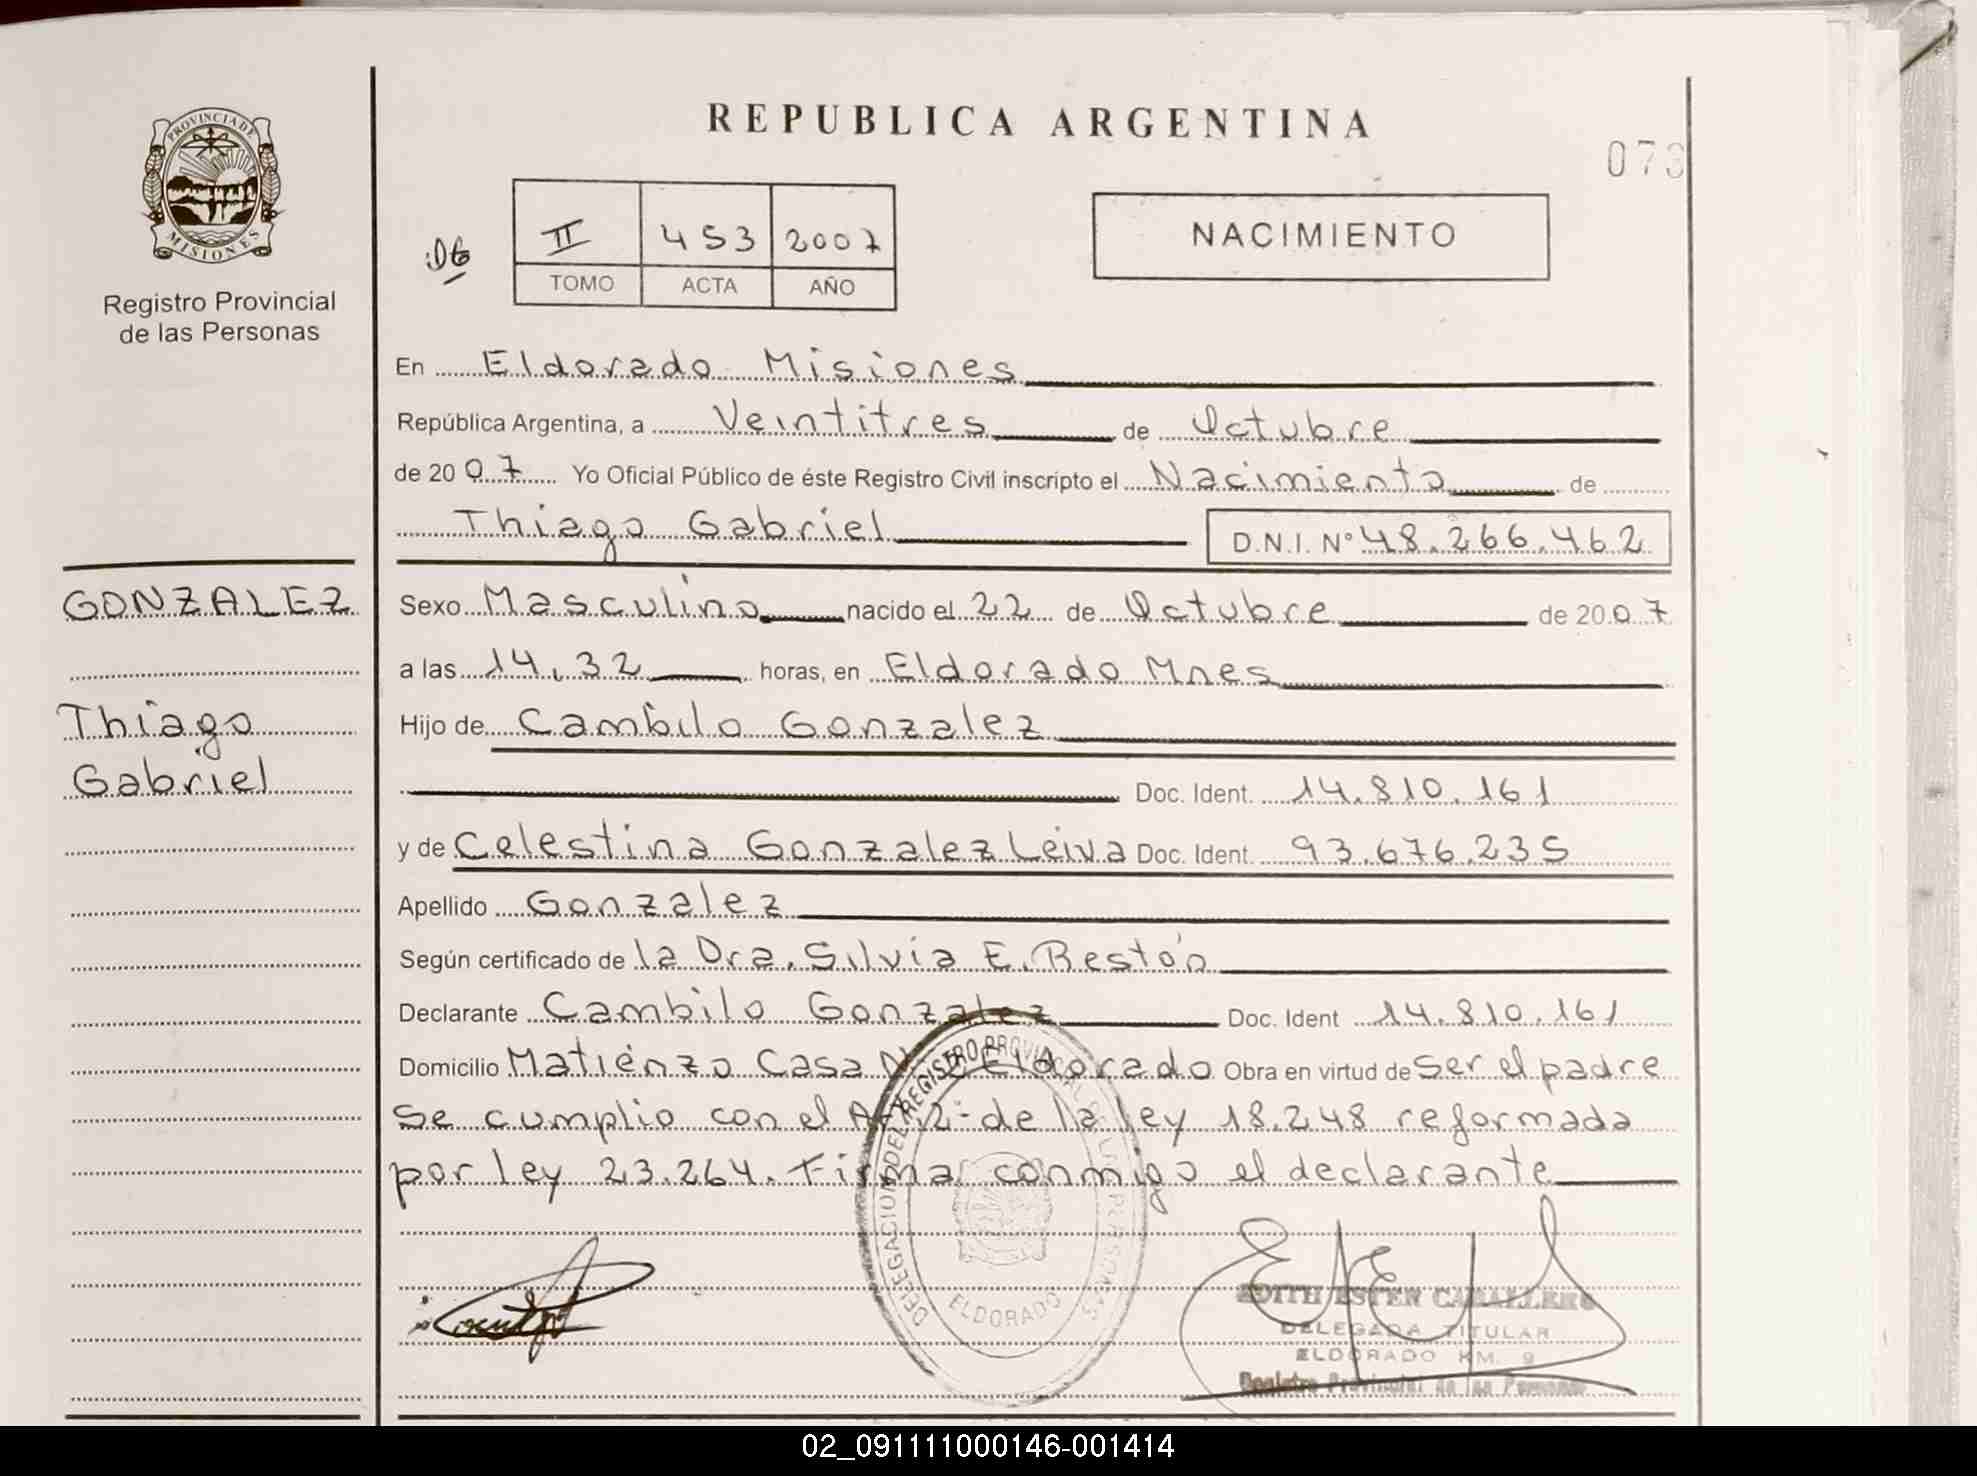 REPUBLICA ARGENTINA
073
PROVINCIA DE
MISIONES
Registro Provincial
de las Personas
II 453 2007
TOMO ACTA AÑO
NACIMIENTO
En Eldorado Misiones
República Argentina, a Veintitres de Octubre
de 2007 Yo Oficial Público de éste Registro Civil inscripto el Nacimiento de
Thiago Gabriel D.N.I. Nº 48.266.462
GONZALEZ
Thiago
Gabriel
Sexo Masculino nacido el 22 de Octubre de 2007
a las 14,32 horas, en Eldorado Mnes
Hijo de Cambilo Gonzalez
Doc. Ident. 14.810.161
y de Celestina Gonzalez Leiva Doc. Ident. 93.676.235
Apellido Gonzalez
Según certificado de la Dra. Silvia E. Restón
Declarante Cambilo Gonzalez Doc. Ident 14.810.161
Domicilio Matienzo Casa Eldorado Obra en virtud de ser el padre
se cumplio con el de la ley 18.248 reformada
por ley 23.264. Firma conmigo el declarante
DELEGACION DEL REGISTRO PROVINCIAL DE LAS PERSONAS
ELDORADO
EDITH ESTER CABALLERO
DELEGADA TITULAR
ELDORADO KM. 9
Registro Provincial de las Personas
02_091111000146-001414